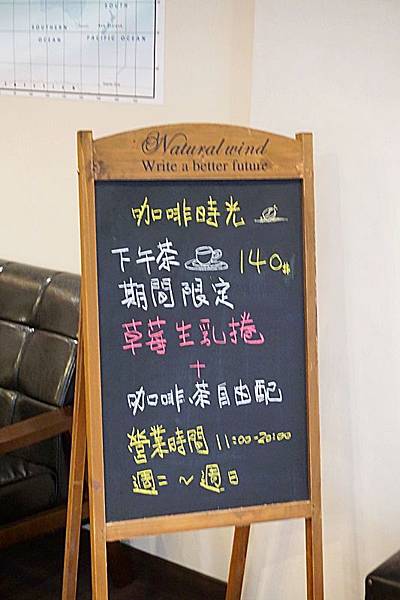 SOUTH
SOUTHERN OCEAN
PACIFIC OCEAN
Naturalwind
Write a better future
咖啡時光
下午茶 140
期間限定
草莓生乳捲
+
咖啡、茶自由配
營業時間 11:00-20:00
週二～週日